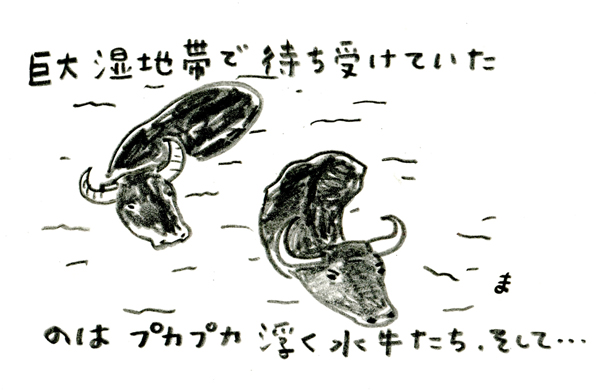 巨大湿地帯で待ち受けていた
ま
のは プカプカ 浮く水牛たち、そして…